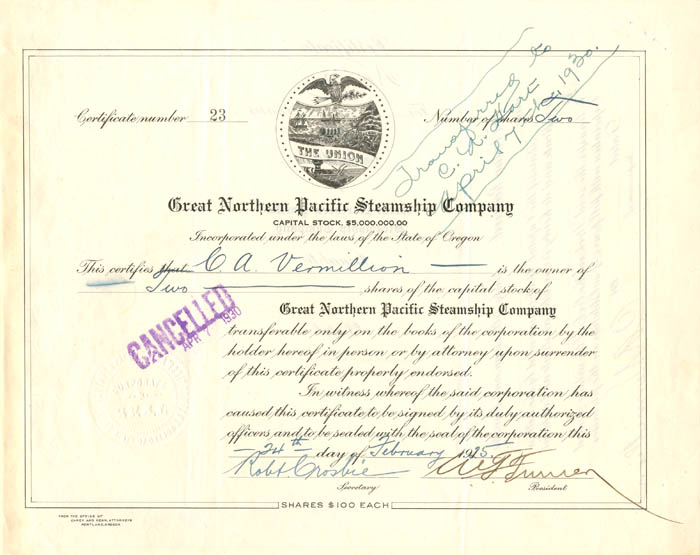 Transferred to
C. A. Hart
April 7th, 1930.
Certificate number 23
Number of shares Two
THE UNION
Great Northern Pacific Steamship Company
CAPITAL STOCK, $5,000,000.00
Incorporated under the laws of the State of Oregon
This certifies that C. A. Vermillion is the owner of
Two shares of the capital stock of
Great Northern Pacific Steamship Company
CANCELLED
APR 7 1930
transferable only on the books of the corporation by the
holder hereof in person or by attorney upon surrender
of this certificate properly endorsed.
In witness whereof the said corporation has
caused this certificate to be signed by its duly authorized
officers and to be sealed with the seal of the corporation this
24th day of February 1915
Robt Crosbie
Secretary
President
SHARES $100 EACH
FROM THE OFFICE OF
CAREY AND KERR, ATTORNEYS
PORTLAND, OREGON